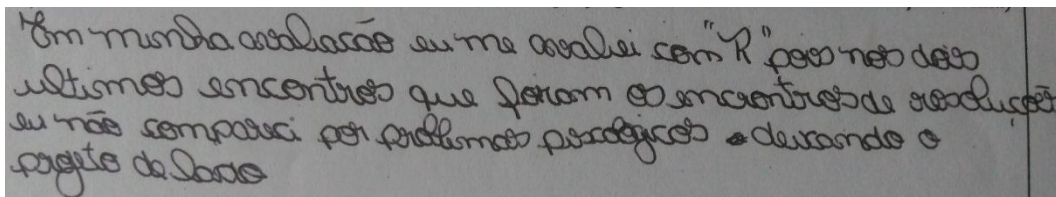 Em minha avaliação eu me avaliei com "R" pois nos dois
ultimos encontros que foram os encontros de resoluções
eu não compareci por problemas psicologicos e deixando o
projeto de lado